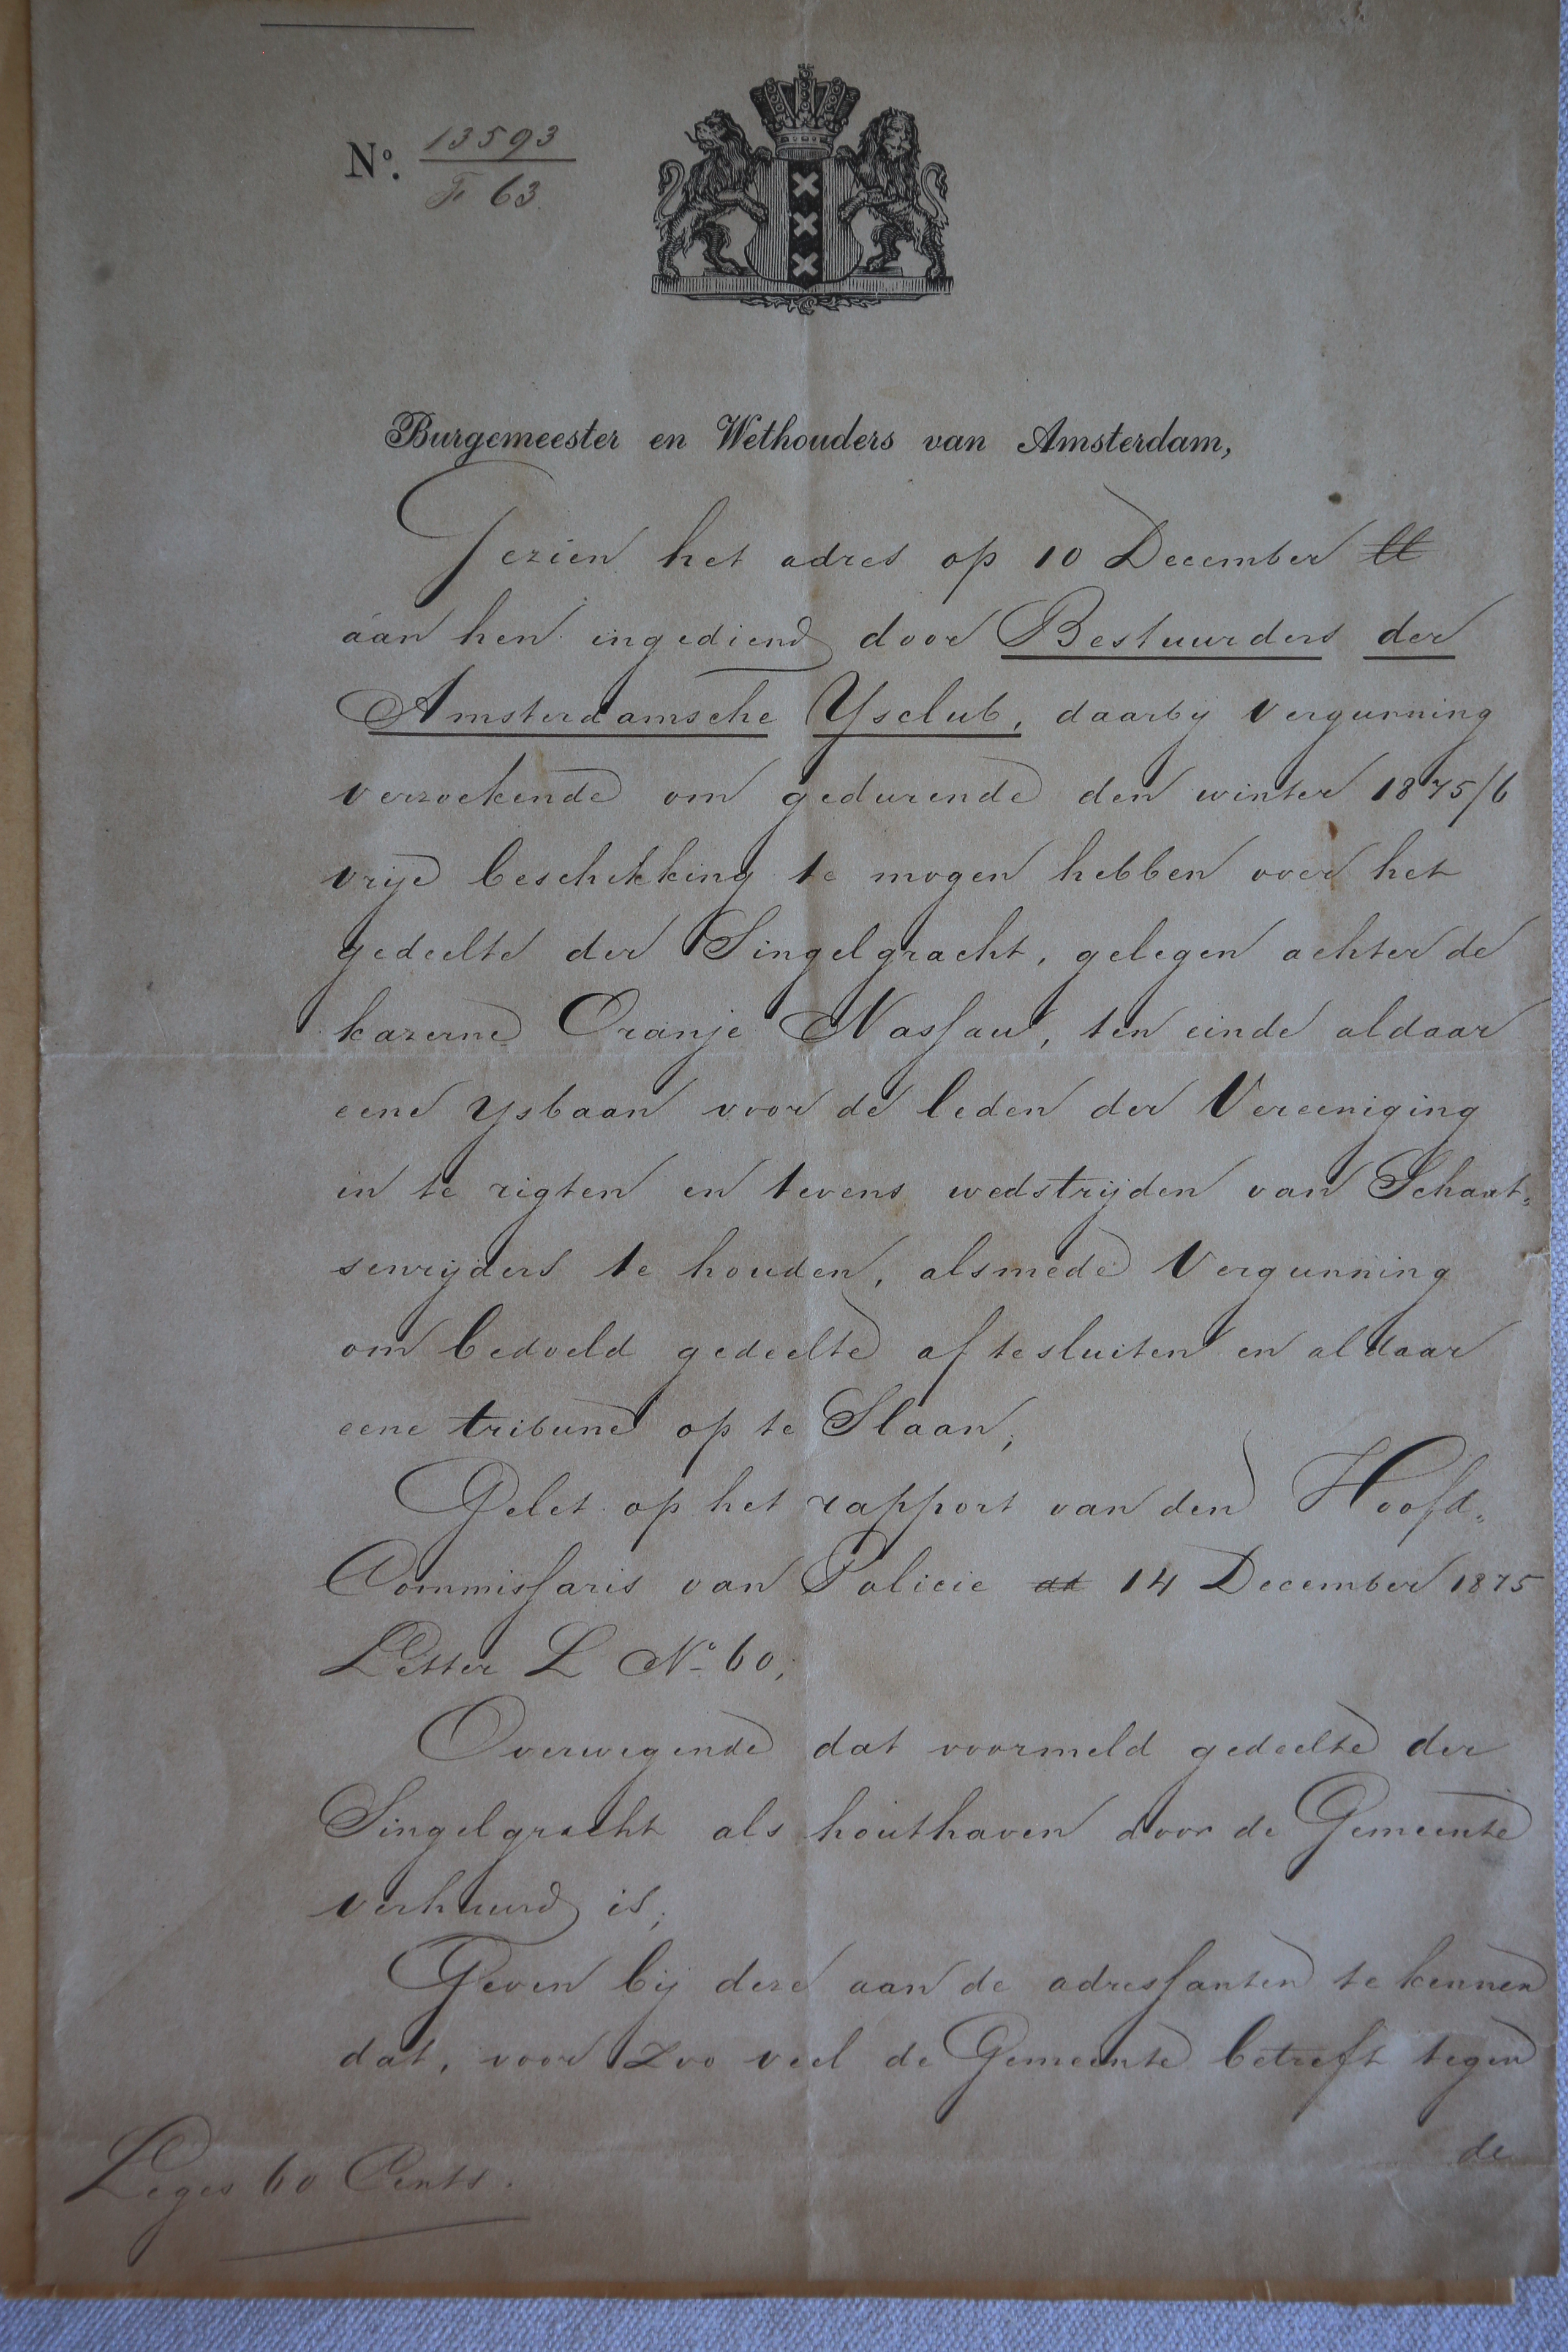 No. 13593
F 63.
Burgemeester en Wethouders van Amsterdam,
Gezien het adres op 10 December ll
aan hen ingediend door Bestuurders der
Amsterdamsche Ysclub, daarbij vergunning
verzoekende om gedurende den winter 1875/6
vrije beschikking te mogen hebben over het
gedeelte der Singelgracht, gelegen achter de
kazerne Oranje Nassau, ten einde aldaar
eene ysbaan voor de leden der Vereeniging
in te rigten en tevens wedstrijden van Schaat=
senrijders te houden, alsmede vergunning
om bedoeld gedeelte af te sluiten en aldaar
eene tribune op te Slaan;
Gelet op het rapport van den Hoofd=
Commissaris van Policie dd 14 December 1875
Letter L No 60;
Overwegende dat voormeld gedeelte der
Singelgracht als houthaven door de Gemeente
verhuurd is;
Geven bij deze aan de adressanten te kennen
dat, voor zoo veel de Gemeente betreft tegen
de
Leges 60 Cents.